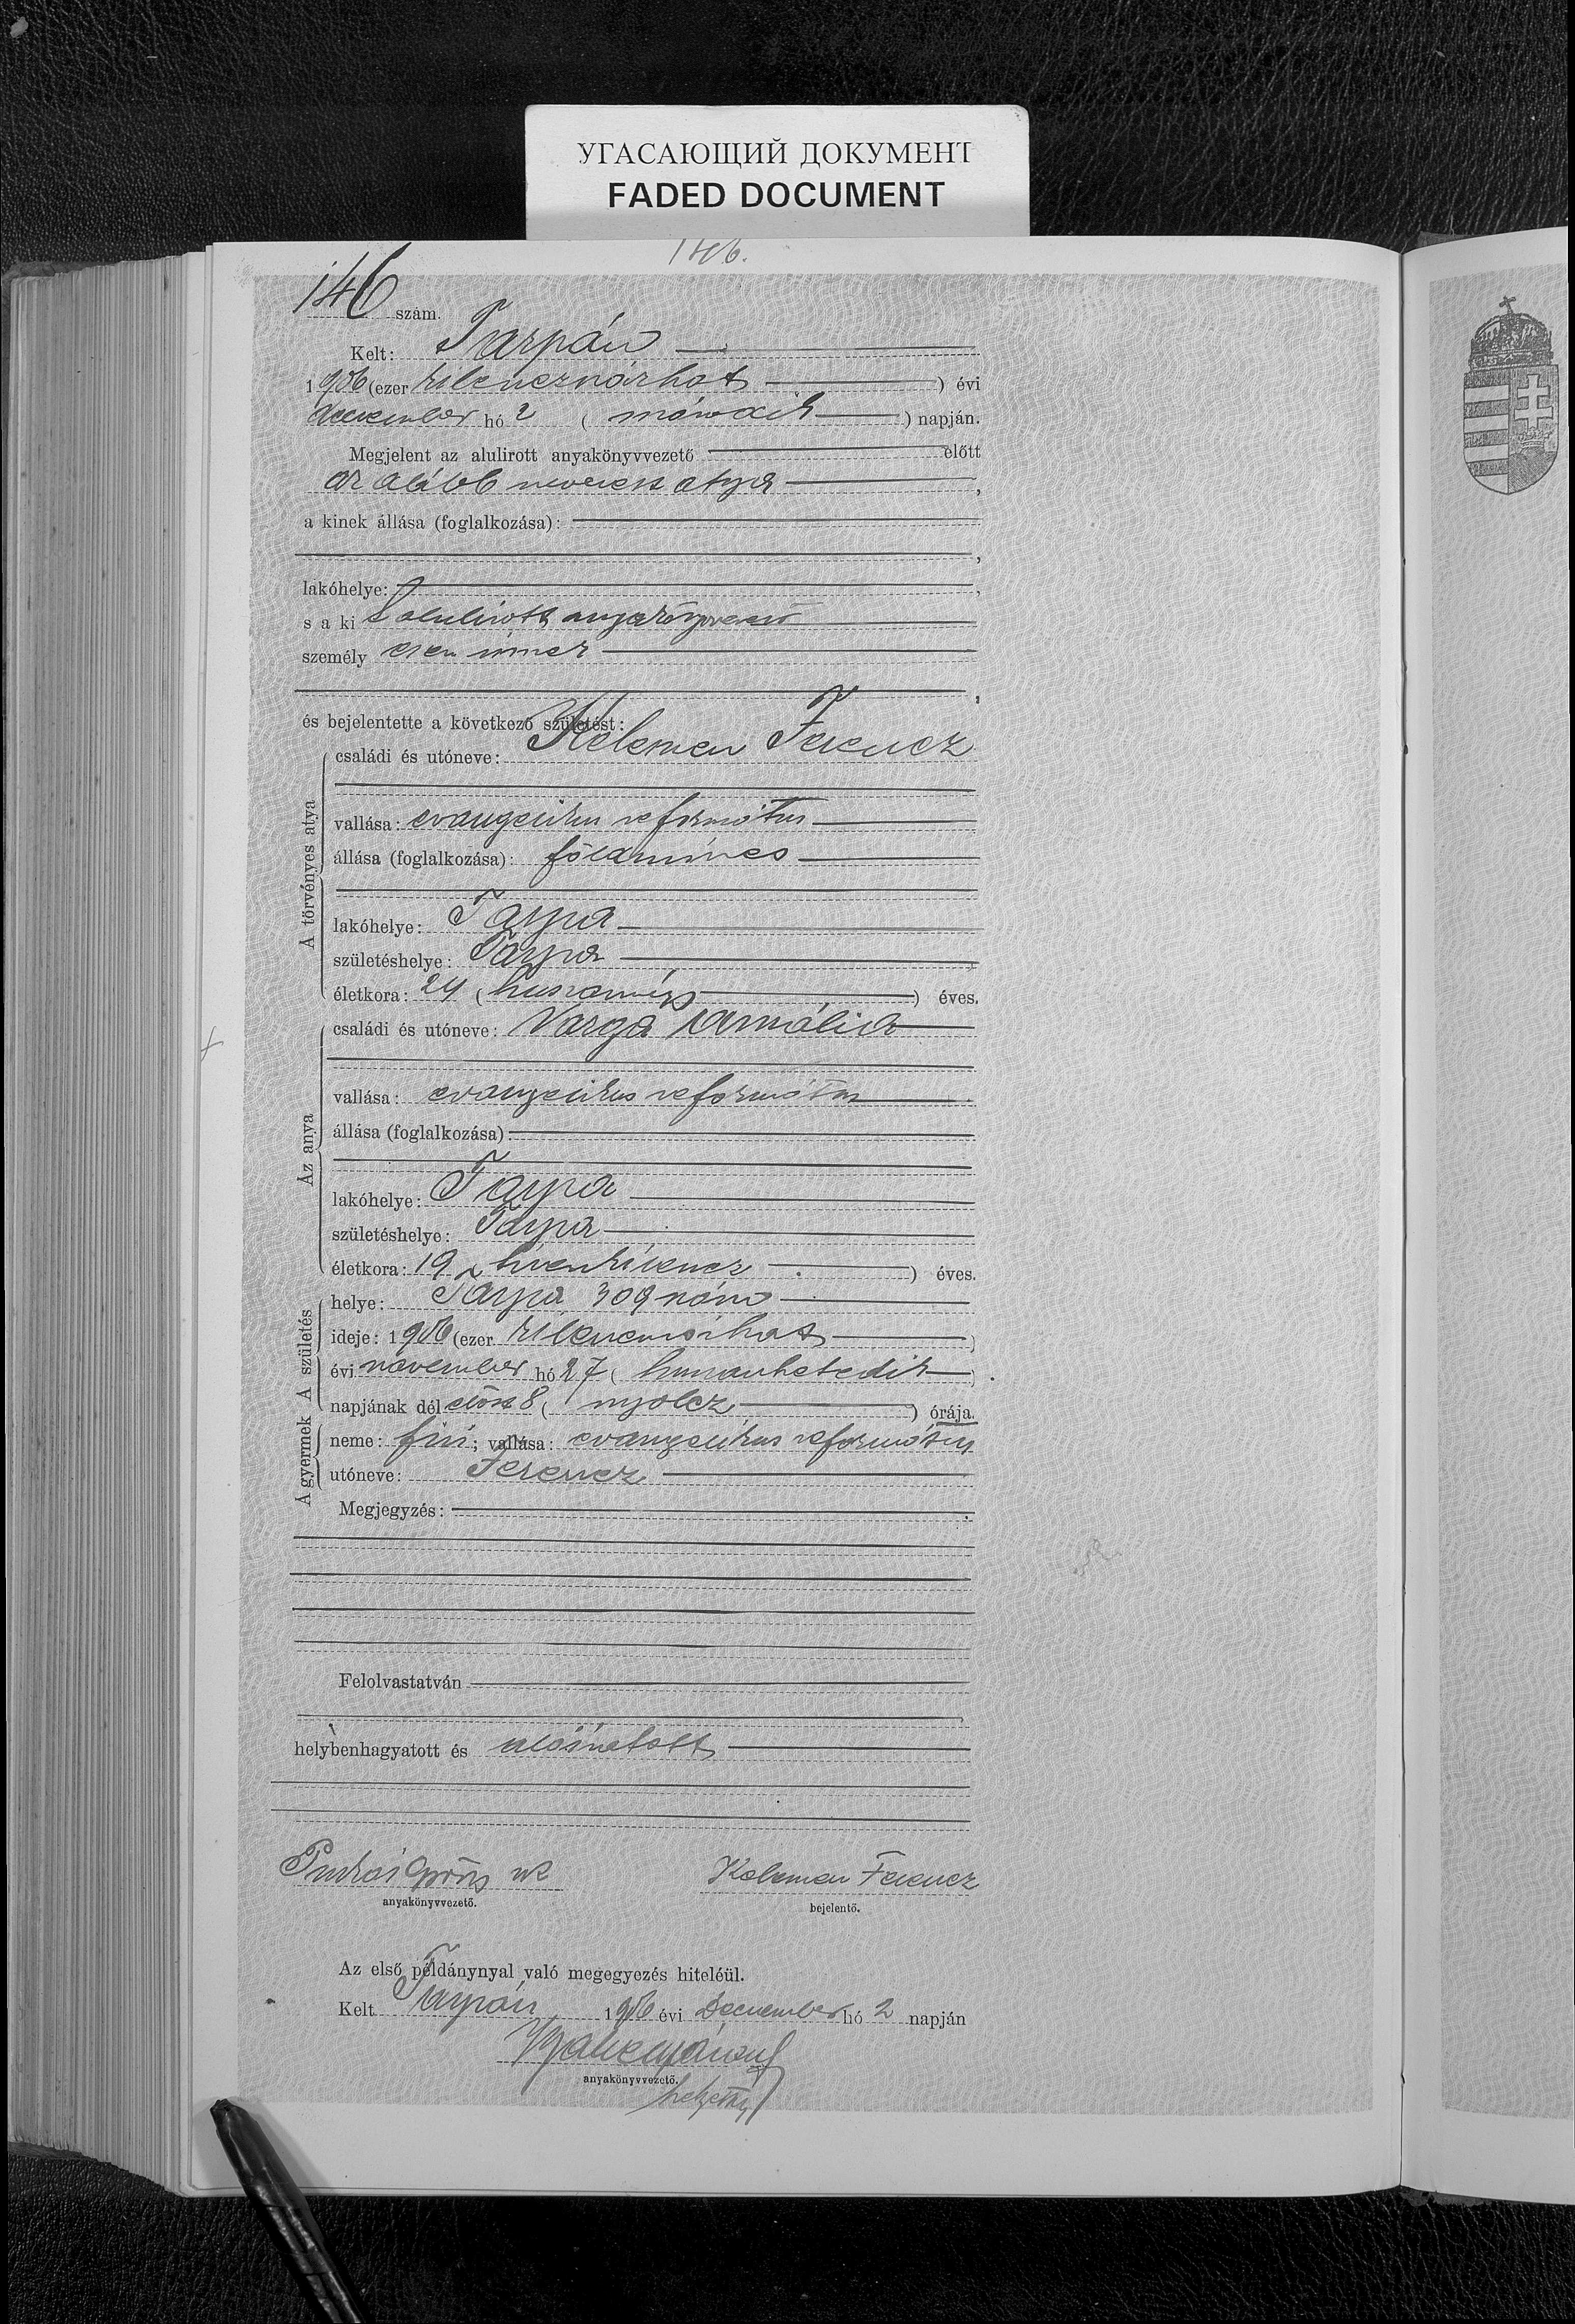 УГАСАЮЩИЙ ДОКУМЕНТ
FADED DOCUMENT
146.
146 szám.
Kelt: Tarpán
1906 (ezer kilenczszázhat) évi
deczember hó 2 (második) napján.
Megjelent az alulirott anyakönyvvezető előtt
az alább nevezett atya,
a kinek állása (foglalkozása):
lakóhelye:
s a ki alulirott anyakönyvvezető
személyesen ismer
és bejelentette a következő születést:
A törvényes atya
családi és utóneve: Kelemen Ferencz
vallása: evangelikus református
állása (foglalkozása): földmíves
lakóhelye: Tarpa
születéshelye: Tarpa
életkora: 24 (huszonnégy) éves.
Az anya
családi és utóneve: Varga Amália
vallása: evangelikus református
állása (foglalkozása):
lakóhelye: Tarpa
születéshelye: Tarpa
életkora: 19 (tizenkilencz) éves.
A születés
helye: Tarpa 309 szám
ideje: 1906 (ezer kilenczszázhat)
évi november hó 27 (huszonhetedik)
napjának dél előtt 8 (nyolcz) órája.
A gyermek
neme: fiú; vallása: evangelikus református
utóneve: Ferencz
Megjegyzés:
Felolvastatván
helybenhagyatott és aláíratott
anyakönyvvezető.
Kelemen Ferencz
bejelentő.
Az első példánynyal való megegyezés hiteléül.
Kelt Tarpán 1906 évi deczember hó 2 napján
anyakönyvvezető.
helyettes